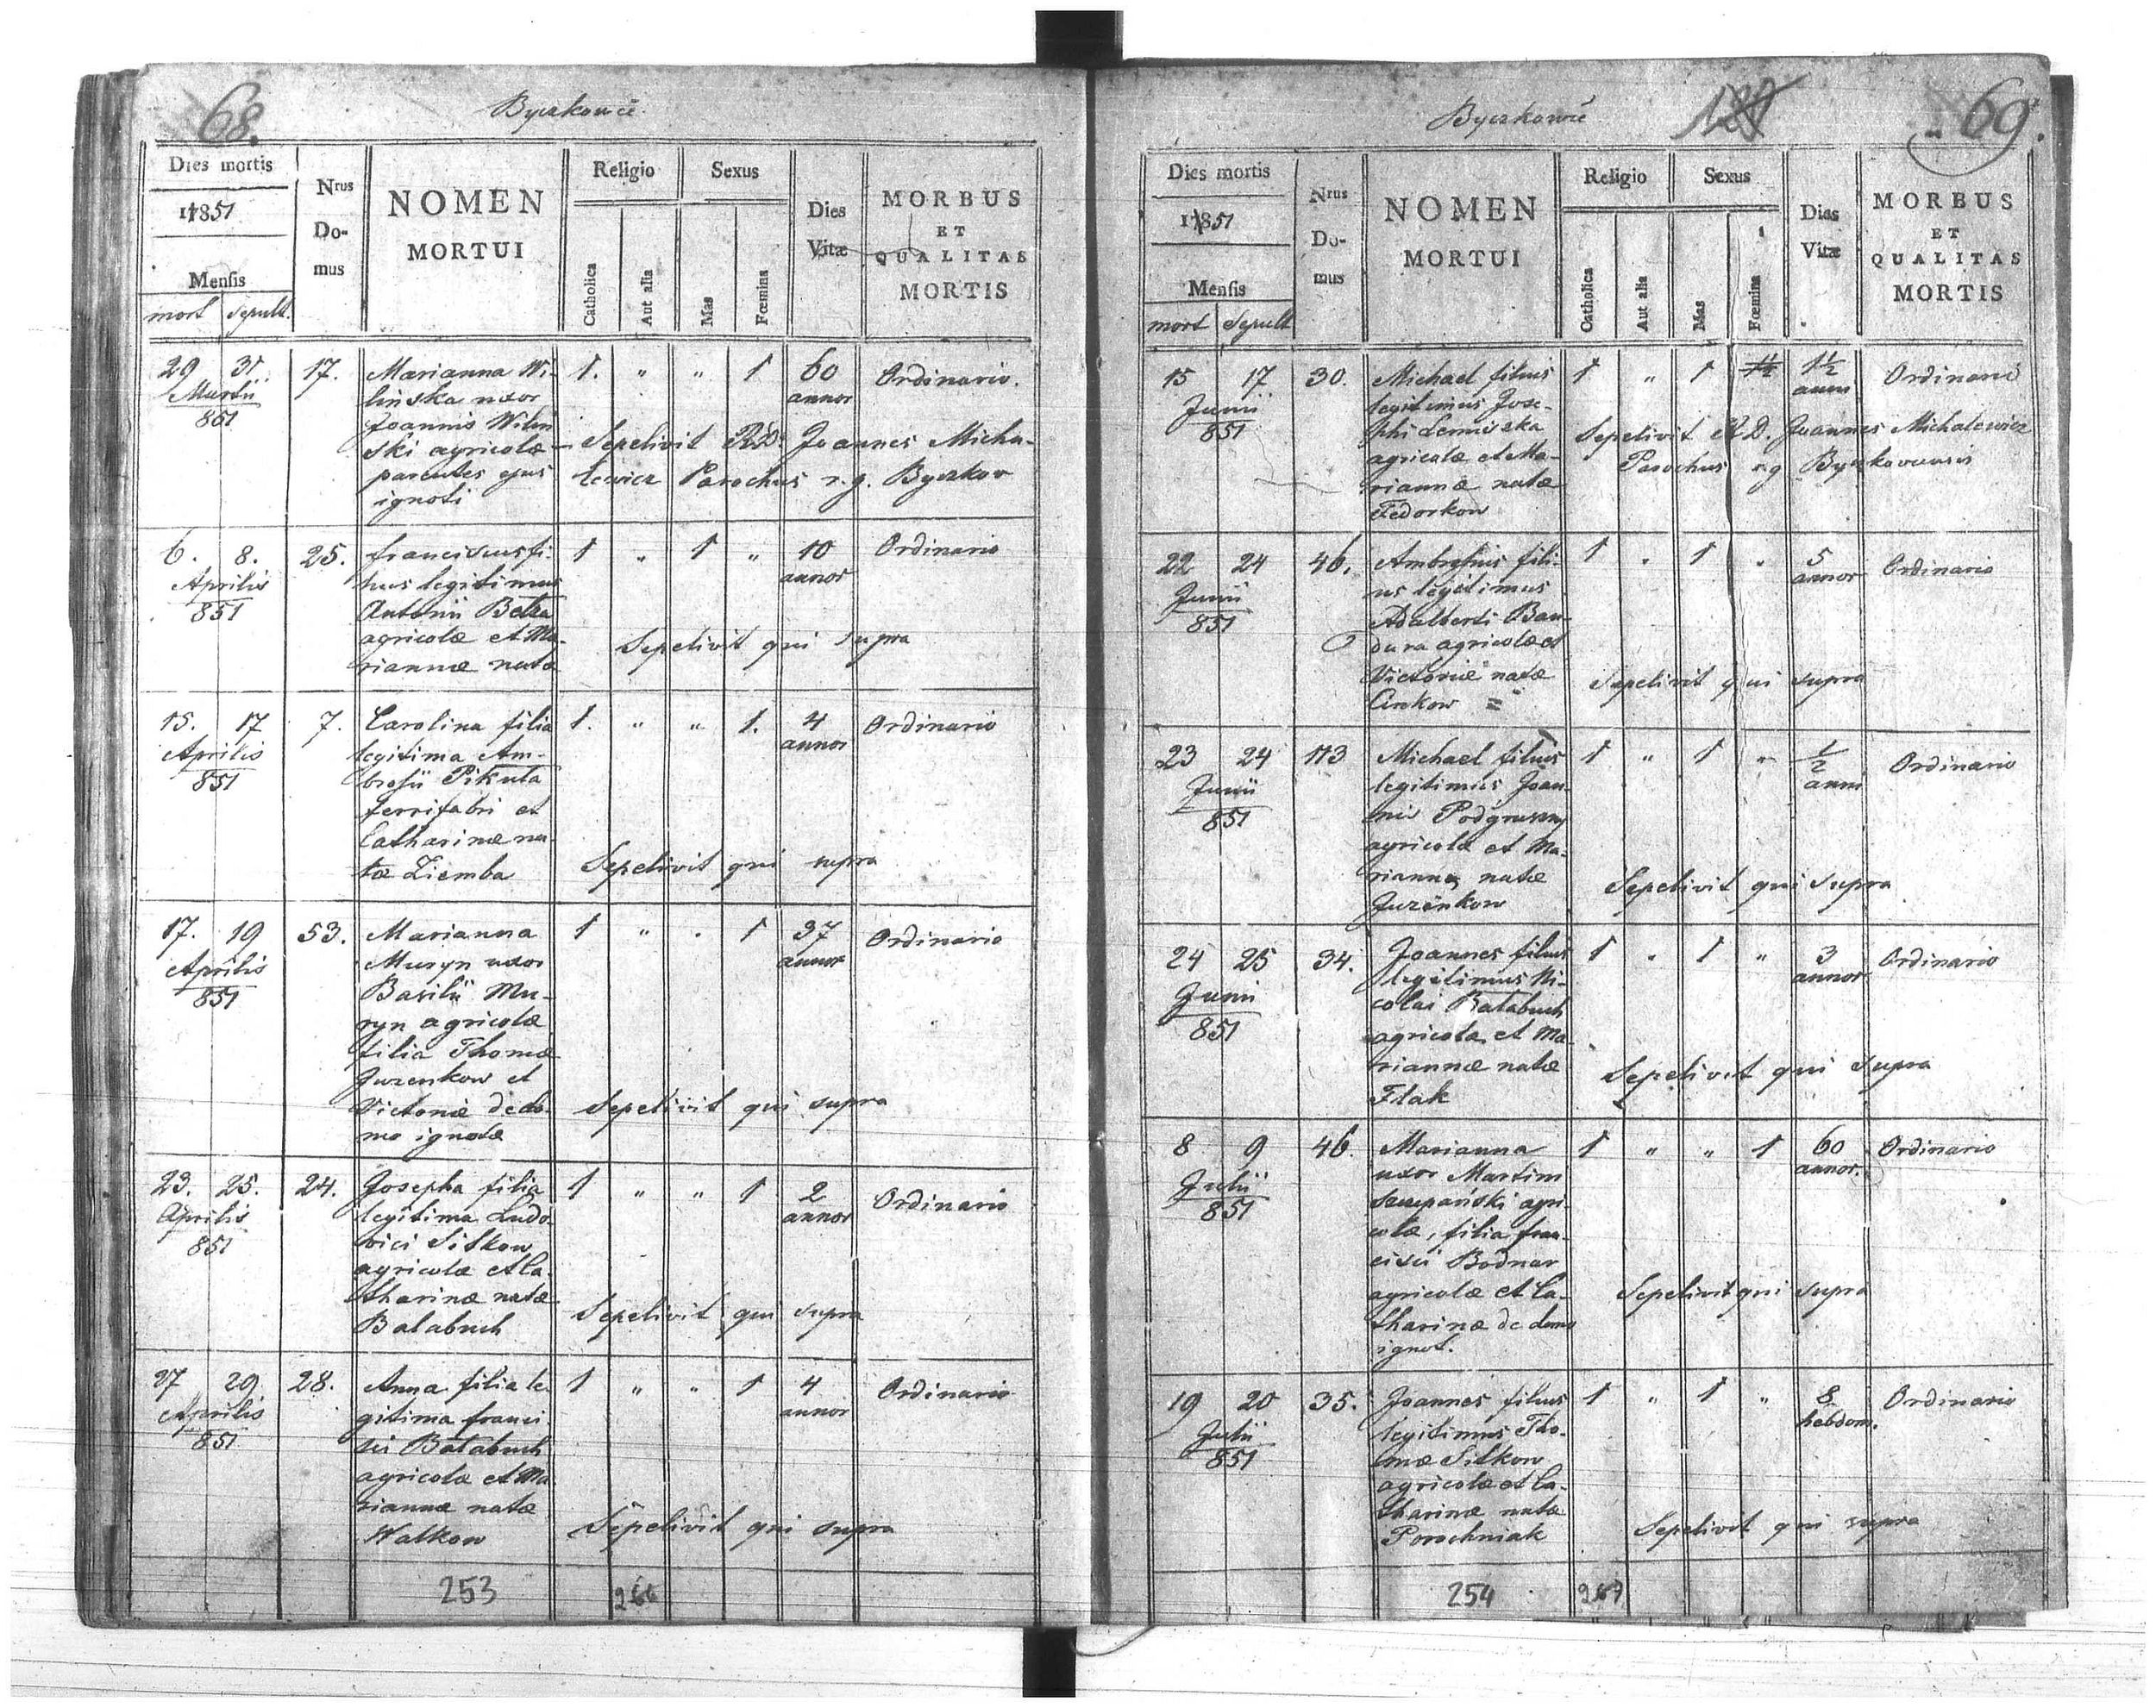 68.
Byczkowce
Dies mortis
1851
Mensis
mort sepult.
Nrus
Do-
mus
NOMEN
MORTUI
Religio
Catholica
Aut alia
Sexus
Mas
Fœmina
Dies
Vitæ
MORBUS
ET
QUALITAS
MORTIS
29 31 17. Marianna Wi- 1. " " 1 60 Ordinario.
Martii linska uxor annor
851 Joannis Wilin
ski agricolæ Sepelivit RD. Joannes Micha-
parentes ejus lewicz Parochus r.g. Byczkov
ignoti
6. 8. 25. Franciscus fi- 1 " 1 " 10 Ordinario
Aprilis lius legitimus annor
851 Antonii Betza
agricolæ et Ma- Sepelivit qui supra
riannæ natæ
15. 17 7. Carolina filia 1. " " 1. 4 Ordinario
Aprilis legitima Am- annor
851 brosii Pikuta
ferrifabri et
Catharinæ na-
tæ Ziemba Sepelivit qui supra
17. 19 53. Marianna 1 " . 1 37 Ordinario
Aprilis Muryn uxor annor
851 Basilii Mu-
ryn agricolæ
filia Thomæ
Juzenkow et
Victoriæ de do- Sepelivit qui supra
mo ignotæ
23. 25. 24. Josepha filia 1 " " 1 2 Ordinario
Aprilis legitima Ludo- annor
851 vici Sitkow
agricolæ et Ca-
tharinæ natæ Sepelivit qui supra
Balabuch
27 29. 28. Anna filia le- 1 " " 1 4 Ordinario
Aprilis gitima Franci- annor
851 sci Balabuch
agricolæ et Ma-
riannæ natæ Sepelivit qui supra
Walkow
253 266
Byczkowce
69.
Dies mortis
1851
Mensis
mort Sepult
Nrus
Do-
mus
NOMEN
MORTUI
Religio
Catholica
Aut alia
Sexus
Mas
Fœmina
Dies
Vitæ
MORBUS
ET
QUALITAS
MORTIS
15 17 30. Michael filius 1 " 1 1½ Ordinario
Junii legitimus Jose- anni
851 phi Lemiszka Sepelivit R.D. Joannes Michalewicz
agricolæ et Ma- Parochus r.g Byczkovcensis
riannæ natæ
Fedorkow
22 24 46. Ambrosius fili- 1 . 1 . 5 Ordinario
Junii us legitimus annor
851 Adalberti Ban-
dura agricolæ et
Victoriæ natæ Sepelivit qui supra
Cinkow =
23 24 113 Michael filius 1 " 1 " ½ Ordinario
Junii legitimus Joan- anni
851 nis Podgruszny
agricolæ et Ma-
riannæ natæ Sepelivit qui supra
Juzenkow
24 25 34. Joannes filius 1 . 1 " 3 Ordinario
Junii legitimus Ni- annor
851 colai Balabuch
agricola et Ma-
riannæ natæ Sepelivit qui supra
Flak
8 9 46. Marianna 1 " " 1 60 Ordinario
Julii uxor Martini annor.
851 Szczepański agri-
colæ, filia Fran-
cisci Bodnar
agricolæ et Ca- Sepelivit qui supra
tharinæ de domo
ignot.
19 20 35. Joannes filius 1 " 1 " 8 Ordinario
Julii legitimus Tho- hebdom.
851 mæ Sitkow
agricolæ et Ca-
tharinæ natæ Sepelivit qui supra
Porochniak
254 267